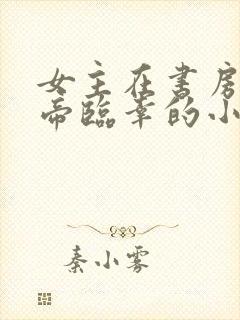 女主在书房
帝临幸的小
秦小雾